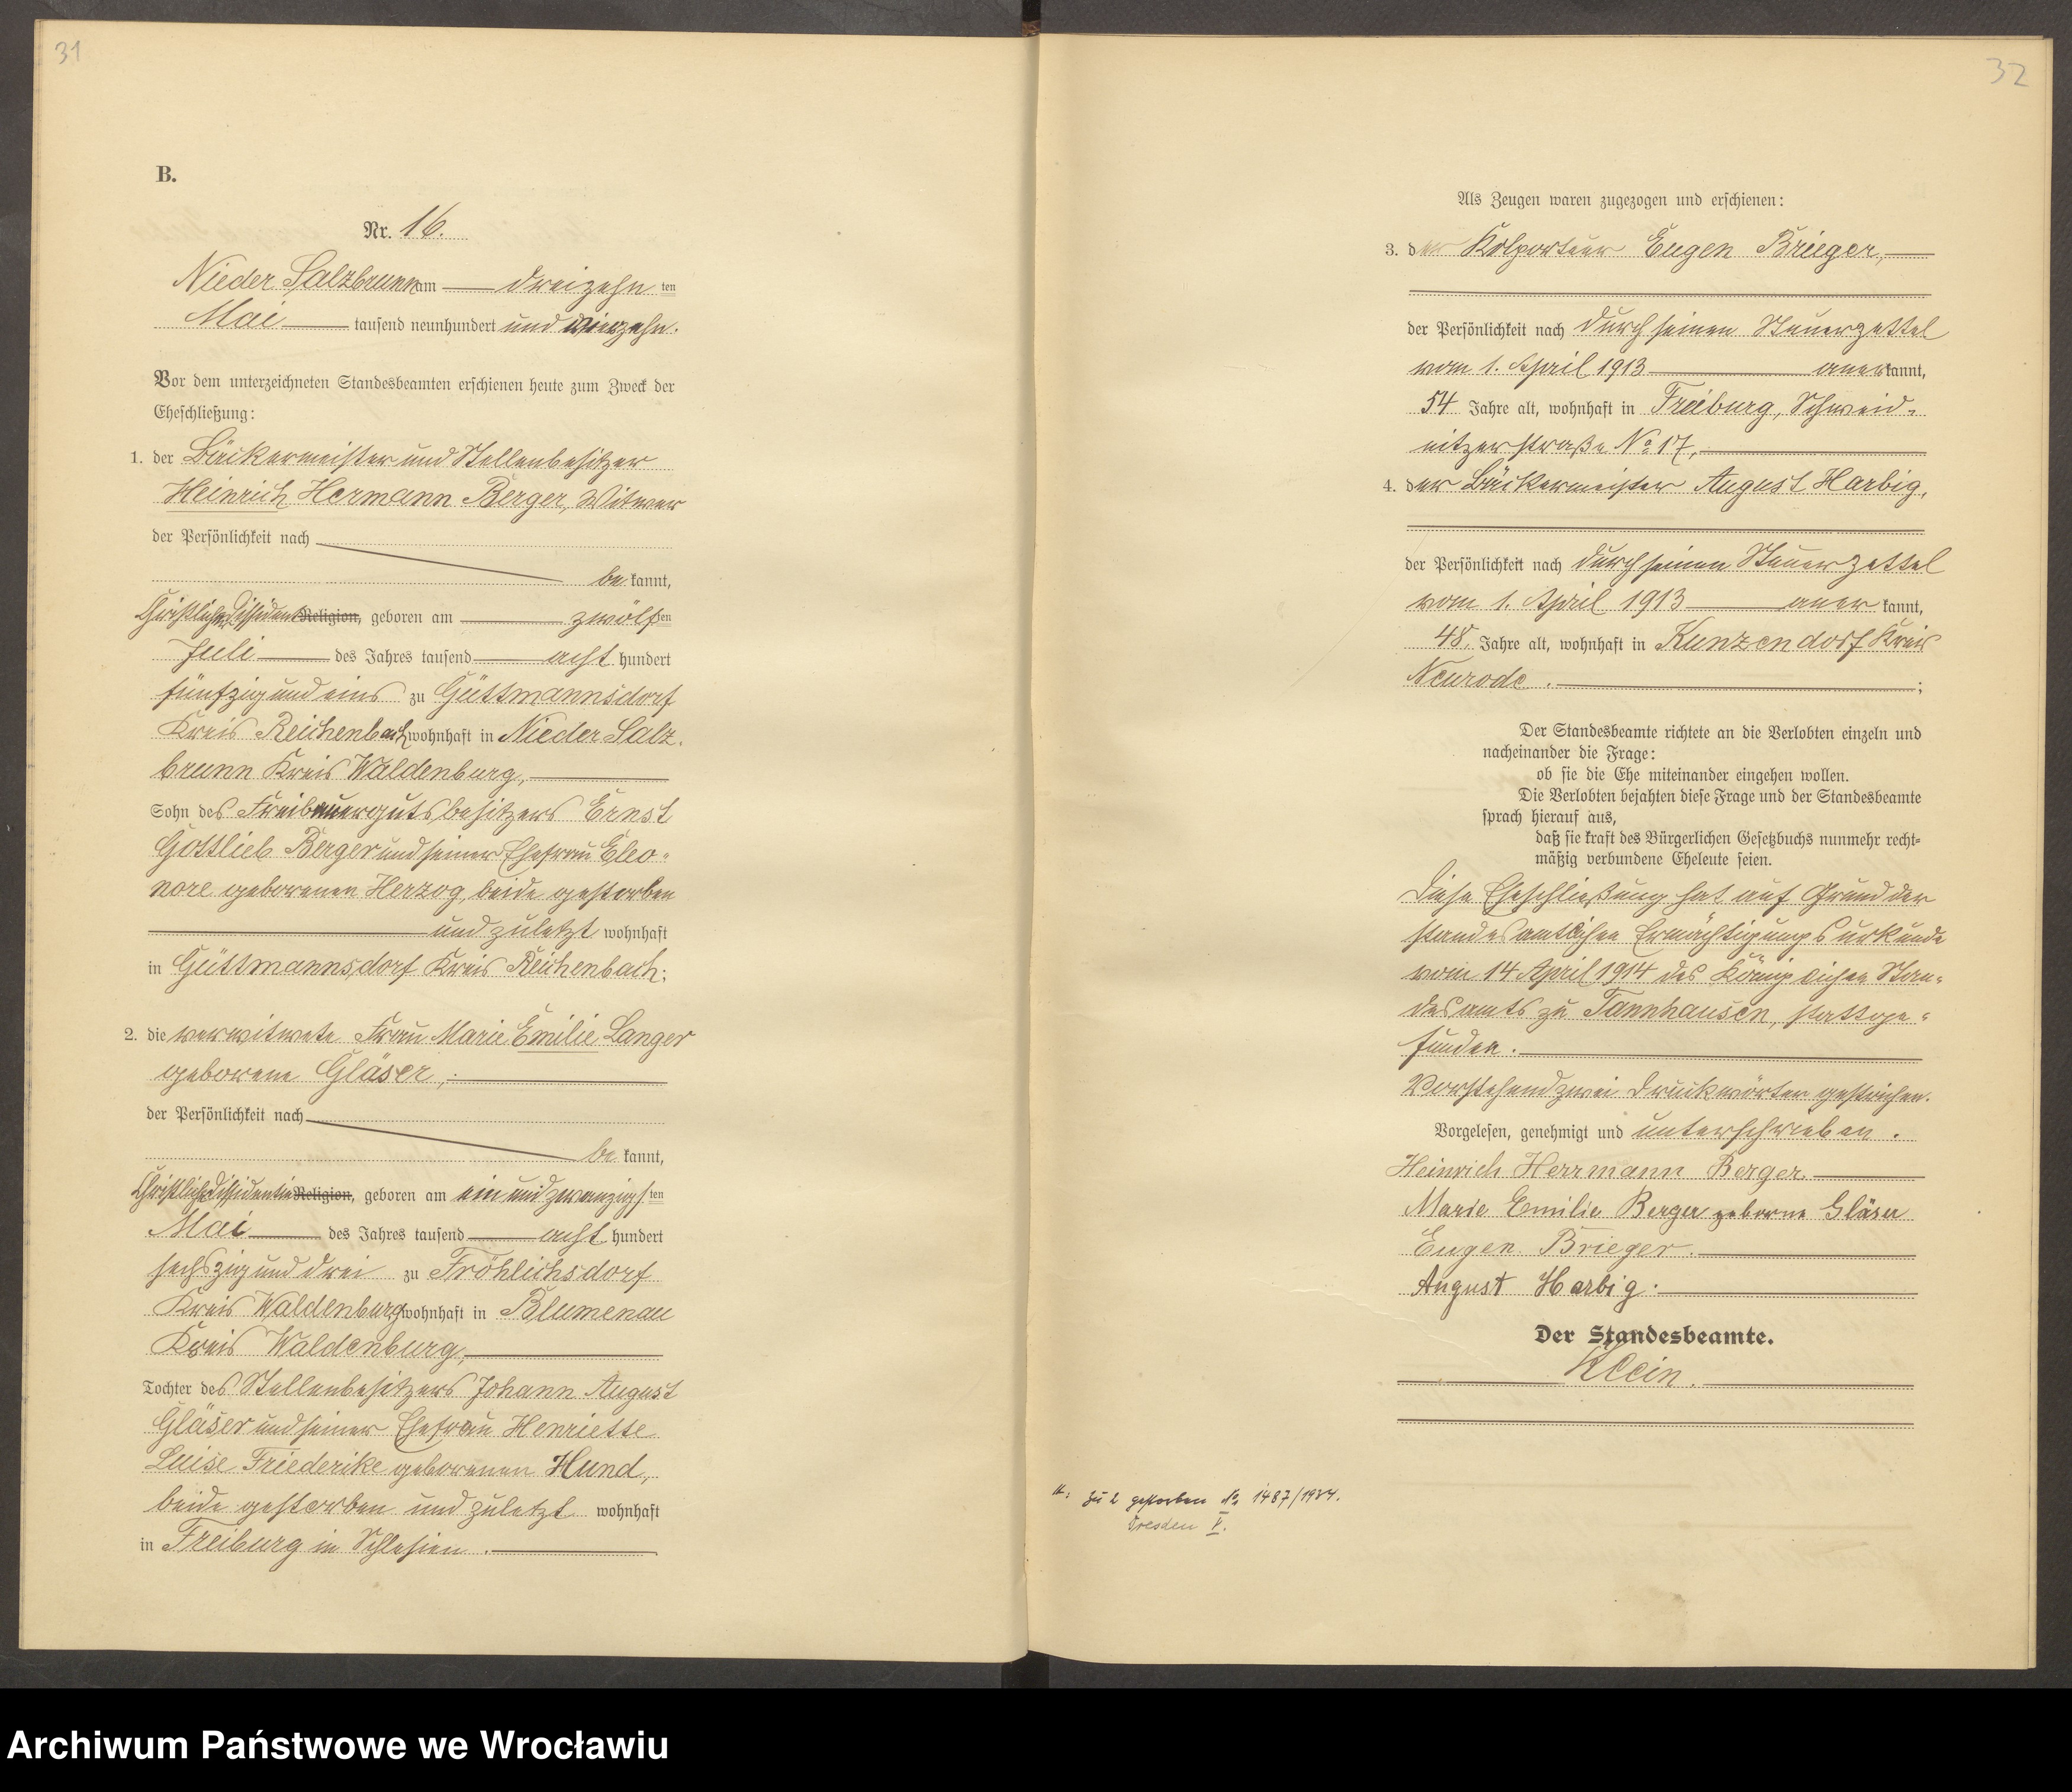 31
B.
Nr. 16.
Nieder Salzbrunn am dreizehn ten
Mai tausend neunhundert und vierzehn.
Vor dem unterzeichneten Standesbeamten erschienen heute zum Zweck der
Eheschließung:
1. der Bäckermeister und Stellenbesitzer
Heinrich Hermann Berger, Witwer
der Persönlichkeit nach
be kannt,
Christlicher Dissident Religion, geboren am zwölf ten
Juli des Jahres tausend acht hundert
fünfzig und eins zu Güttmannsdorf
Kreis Reichenbach, wohnhaft in Nieder Salz-
brunn Kreis Waldenburg,
Sohn des Freibauergutsbesitzers Ernst
Gottlieb Berger und seiner Ehefrau Eleo-
nore geborenen Herzog, beide gestorben
und zuletzt wohnhaft
in Güttmannsdorf Kreis Reichenbach;
2. die verwitwete Frau Marie Emilie Langer
geborene Gläser,
der Persönlichkeit nach
be kannt,
Christliche Dissidentin Religion, geboren am ein und zwanzigs ten
Mai des Jahres tausend acht hundert
sechszig und drei zu Fröhlichsdorf
Kreis Waldenburg, wohnhaft in Blumenau
Kreis Waldenburg,
Tochter des Stellenbesitzers Johann August
Gläser und seiner Ehefrau Henriette
Luise Friederike geborenen Hund,
beide gestorben und zuletzt wohnhaft
in Freiburg in Schlesien.
32
Als Zeugen waren zugezogen und erschienen:
3. der Kolporteur Eugen Brieger,
der Persönlichkeit nach durch seinen Steuerzettel
vom 1. April 1913 anerkannt,
54 Jahre alt, wohnhaft in Freiburg, Schweid-
nitzerstraße No 17,
4. der Bäckermeister August Harbig,
der Persönlichkeit nach durch seinen Steuerzettel
vom 1. April 1913 aner kannt,
48 Jahre alt, wohnhaft in Kunzendorf Kreis
Neurode.;
Der Standesbeamte richtete an die Verlobten einzeln und
nacheinander die Frage:
ob sie die Ehe miteinander eingehen wollen.
Die Verlobten bejahten diese Frage und der Standesbeamte
sprach hierauf aus,
daß sie kraft des Bürgerlichen Gesetzbuchs nunmehr recht-
mäßig verbundene Eheleute seien.
Diese Eheschließung hat auf Grund der
standesamtlichen Ermächtigungsurkunde
vom 14 April 1914 des Königlichen Stan-
desamts zu Tannhausen, stattge-
funden.
Vorstehend zwei Druckwörter gestrichen.
Vorgelesen, genehmigt und unterschrieben.
Heinrich Herrmann Berger.
Marie Emilie Berger geborne Gläser
Eugen Brieger.
August Harbig.
Der Standesbeamte.
Klein.
zu 2 gestorben No 1487/1934.
Dresden V.
Archiwum Państwowe we Wrocławiu